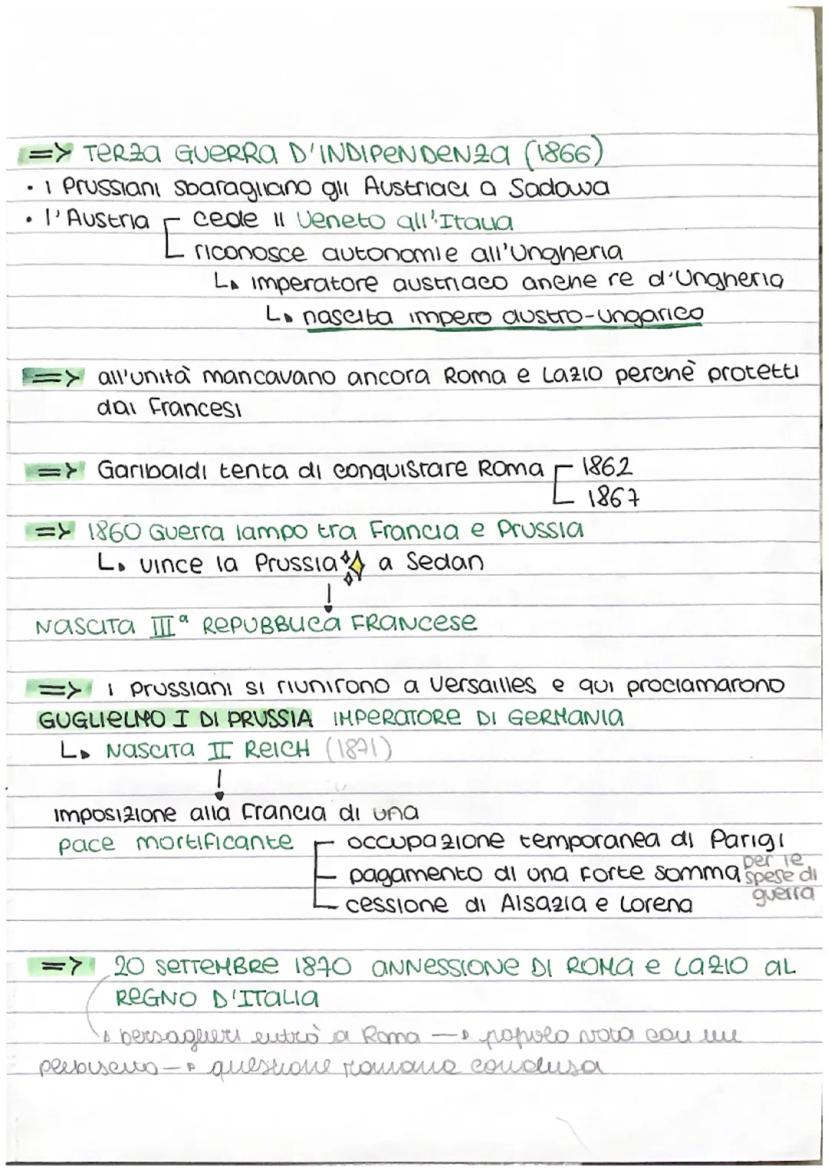 => TERZA GUERRA D'INDIPENDENZA (1866)
• i Prussiani sbaragliano gli Austriaci a Sadowa
• l'Austria cede il Veneto all'Italia
riconosce autonomie all'Ungheria
↳ imperatore austriaco anche re d'Ungheria
↳ nascita impero austro-ungarico
=> all'unità mancavano ancora Roma e Lazio perchè protetti
dai Francesi
=> Garibaldi tenta di conquistare Roma 1862
1867
=> 1860 Guerra lampo tra Francia e Prussia
↳ vince la Prussia a Sedan
↓
NASCITA IIIª REPUBBLICA FRANCESE
=> i Prussiani si riunirono a Versailles e qui proclamarono
GUGLIELMO I DI PRUSSIA IMPERATORE DI GERMANIA
↳ NASCITA II REICH (1871)
↓
imposizione alla Francia di una
pace mortificante occupazione temporanea di Parigi
pagamento di una forte somma per le spese di guerra
cessione di Alsazia e Lorena
=> 20 SETTEMBRE 1870 ANNESSIONE DI ROMA e LAZIO AL
REGNO D'ITALIA
↳ bersaglieri entrò a Roma → popolo vota con un
plebiscito → questione romana conclusa